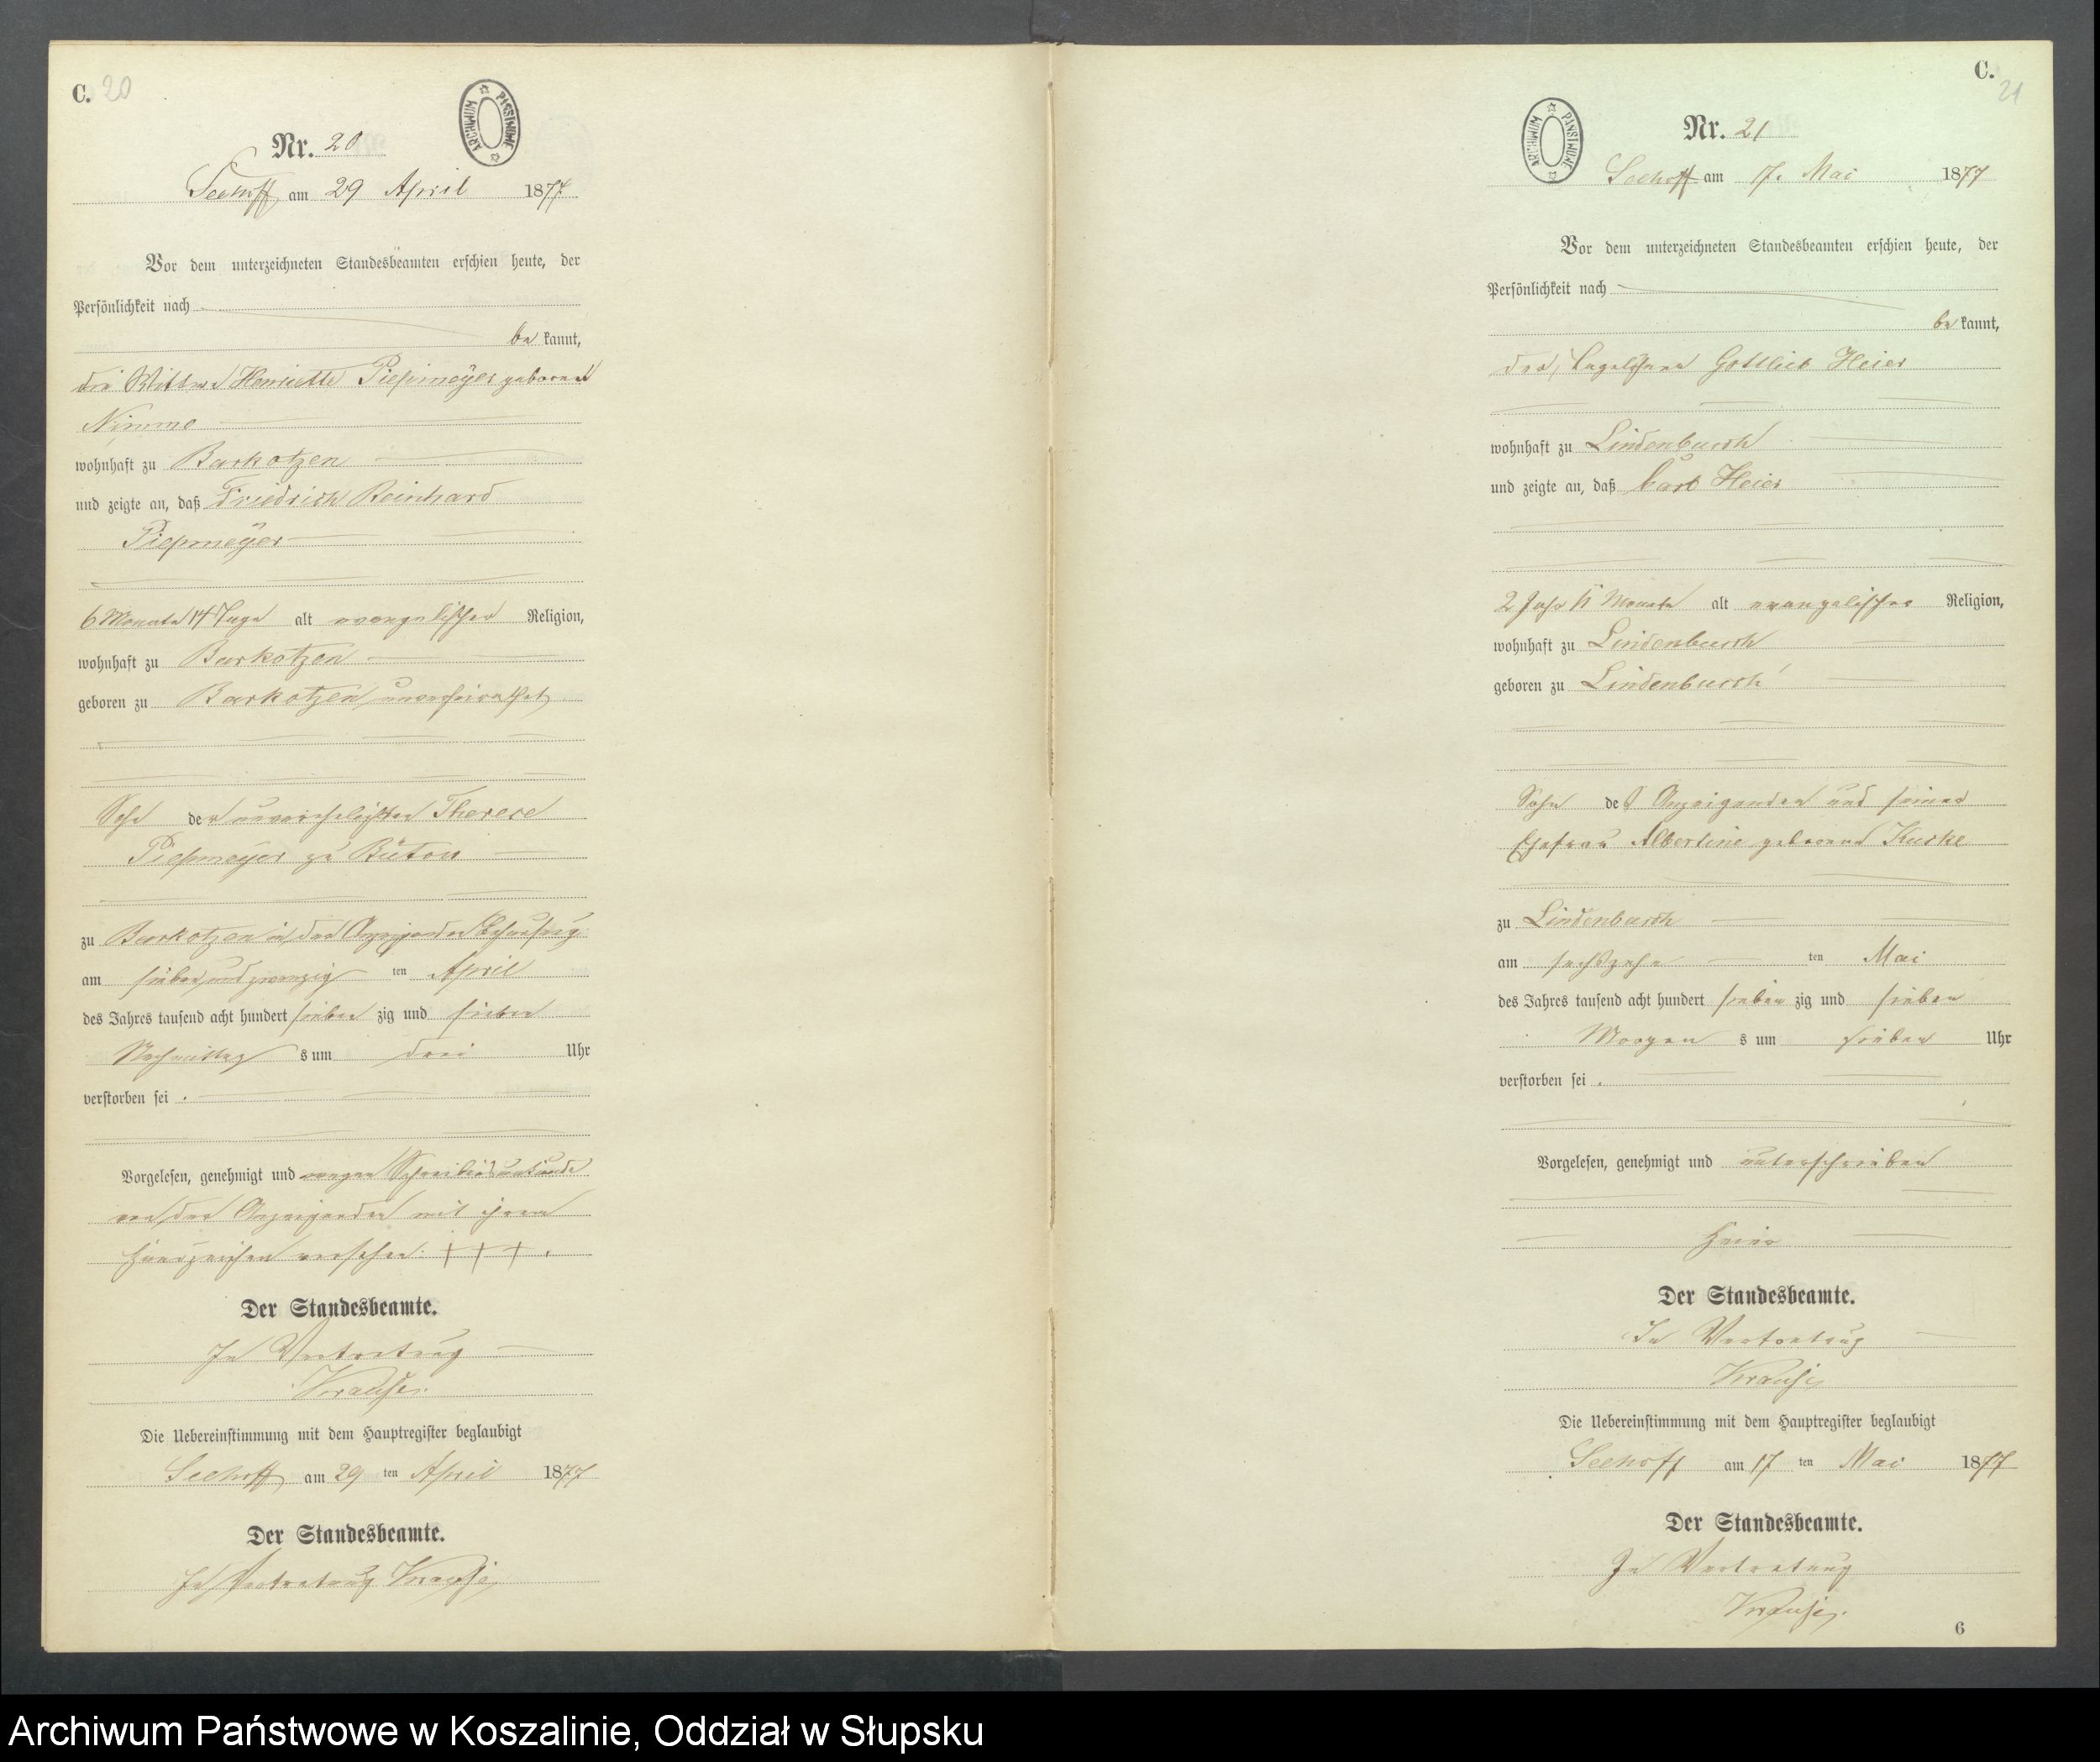 C. 20
ARCHIWUM PAŃSTWOWE
Nr. 20
Seehoff am 29 April 1877
Vor dem unterzeichneten Standesbeamten erschien heute, der
Persönlichkeit nach
be kannt,
die Wittwe Henriette Piepmeÿer geborene
Nimme
wohnhaft zu Barkotzen
und zeigte an, daß Friedrich Reinhard
Piepmeÿer
6 Monate 14 Tage alt evangelischer Religion,
wohnhaft zu Barkotzen
geboren zu Barkotzen, unverheirathet,
Sohn der unverehelichten Therese
Piepmeÿer zu Bütow
zu Barkotzen in der Anzeigenden Behausung
am sieben und zwanzig ten April
des Jahres tausend acht hundert sieben zig und sieben
Nachmittag s um drei Uhr
verstorben sei.
Vorgelesen, genehmigt und wegen Schreibensunkunde
von der Anzeigenden mit ihrem
Handzeichen versehen. + + +.
Der Standesbeamte.
In Vertretung
Krause.
Die Uebereinstimmung mit dem Hauptregister beglaubigt
Seehoff, am 29 ten April 1877
Der Standesbeamte.
In Vertretung Krause,
C.
21
ARCHIWUM PAŃSTWOWE
Nr. 21
Seehoff am 17. Mai 1877
Vor dem unterzeichneten Standesbeamten erschien heute, der
Persönlichkeit nach
be kannt,
der Gottlieb Heier
wohnhaft zu Lindenbusch
und zeigte an, daß Carl Heier
2 Jahr 11 Monate alt evangelischer Religion,
wohnhaft zu Lindenbusch
geboren zu Lindenbusch
Sohn des Anzeigenden und seiner
Ehefrau Albertine geborene Kuske
zu Lindenbusch
am sechszehn ten Mai
des Jahres tausend acht hundert sieben zig und sieben
Morgen s um sieben Uhr
verstorben sei.
Vorgelesen, genehmigt und unterschrieben
Heier
Der Standesbeamte.
In Vertretung
Krause,
Die Uebereinstimmung mit dem Hauptregister beglaubigt
Seehoff am 17 ten Mai 1877
Der Standesbeamte.
In Vertretung
Krause,.
6
Archiwum Państwowe w Koszalinie, Oddział w Słupsku